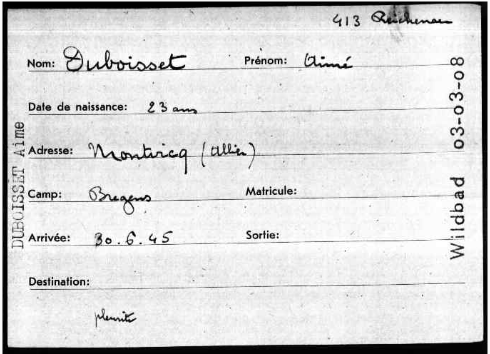 413 Reichenau
Nom: Duboisset Prénom: Aimé
Date de naissance: 23 ans
Adresse: Montvicq (Allier)
Camp: Bregens Matricule:
Arrivée: 30.6.45 Sortie:
Destination:
pleurite
DUBOISSET Aime
Wildbad 03-03-08